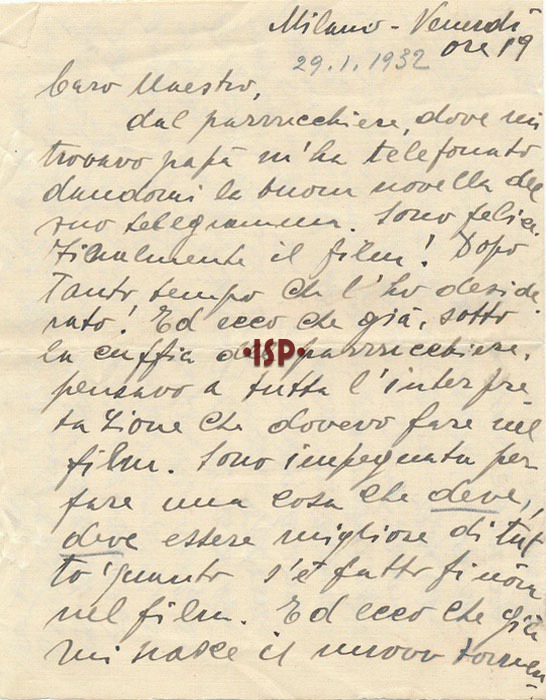 Milano - Venerdì
ore 19
29.1.1932
Caro Maestro,
dal parrucchiere, dove mi
trovavo papà m'ha telefonato
dandomi la buona novella del
suo telegramma. Sono felice.
Finalmente il film! Dopo
tanto tempo che l'ho deside
rato! Ed ecco che già, sotto
la cuffia del parrucchiere,
·ISP·
pensavo a tutta l'interpre
tazione che dovevo fare nel
film. Sono impegnata per
fare una cosa che deve,
deve essere migliore di tut
to quanto s'è fatto finóra
nel film. Ed ecco che già
mi nasce il nuovo tormen